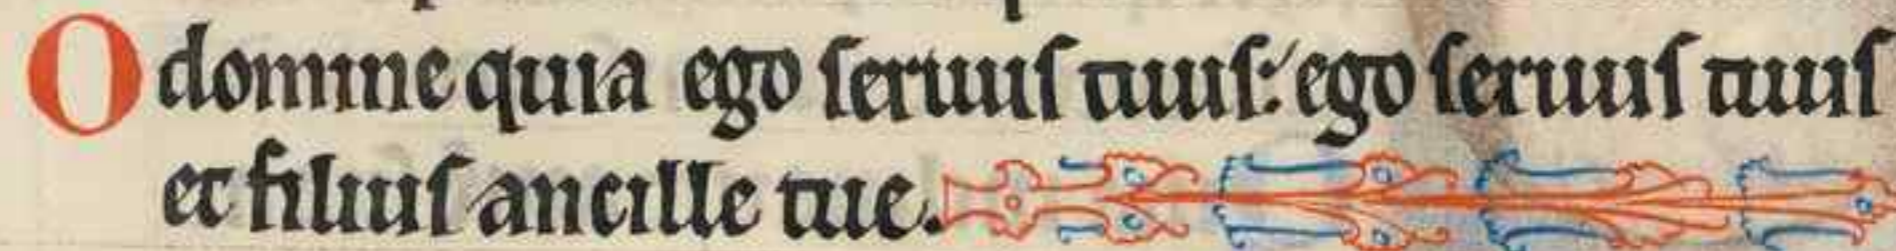 O domine quia ego seruus tuus: ego seruus tuus
et filius ancille tue.